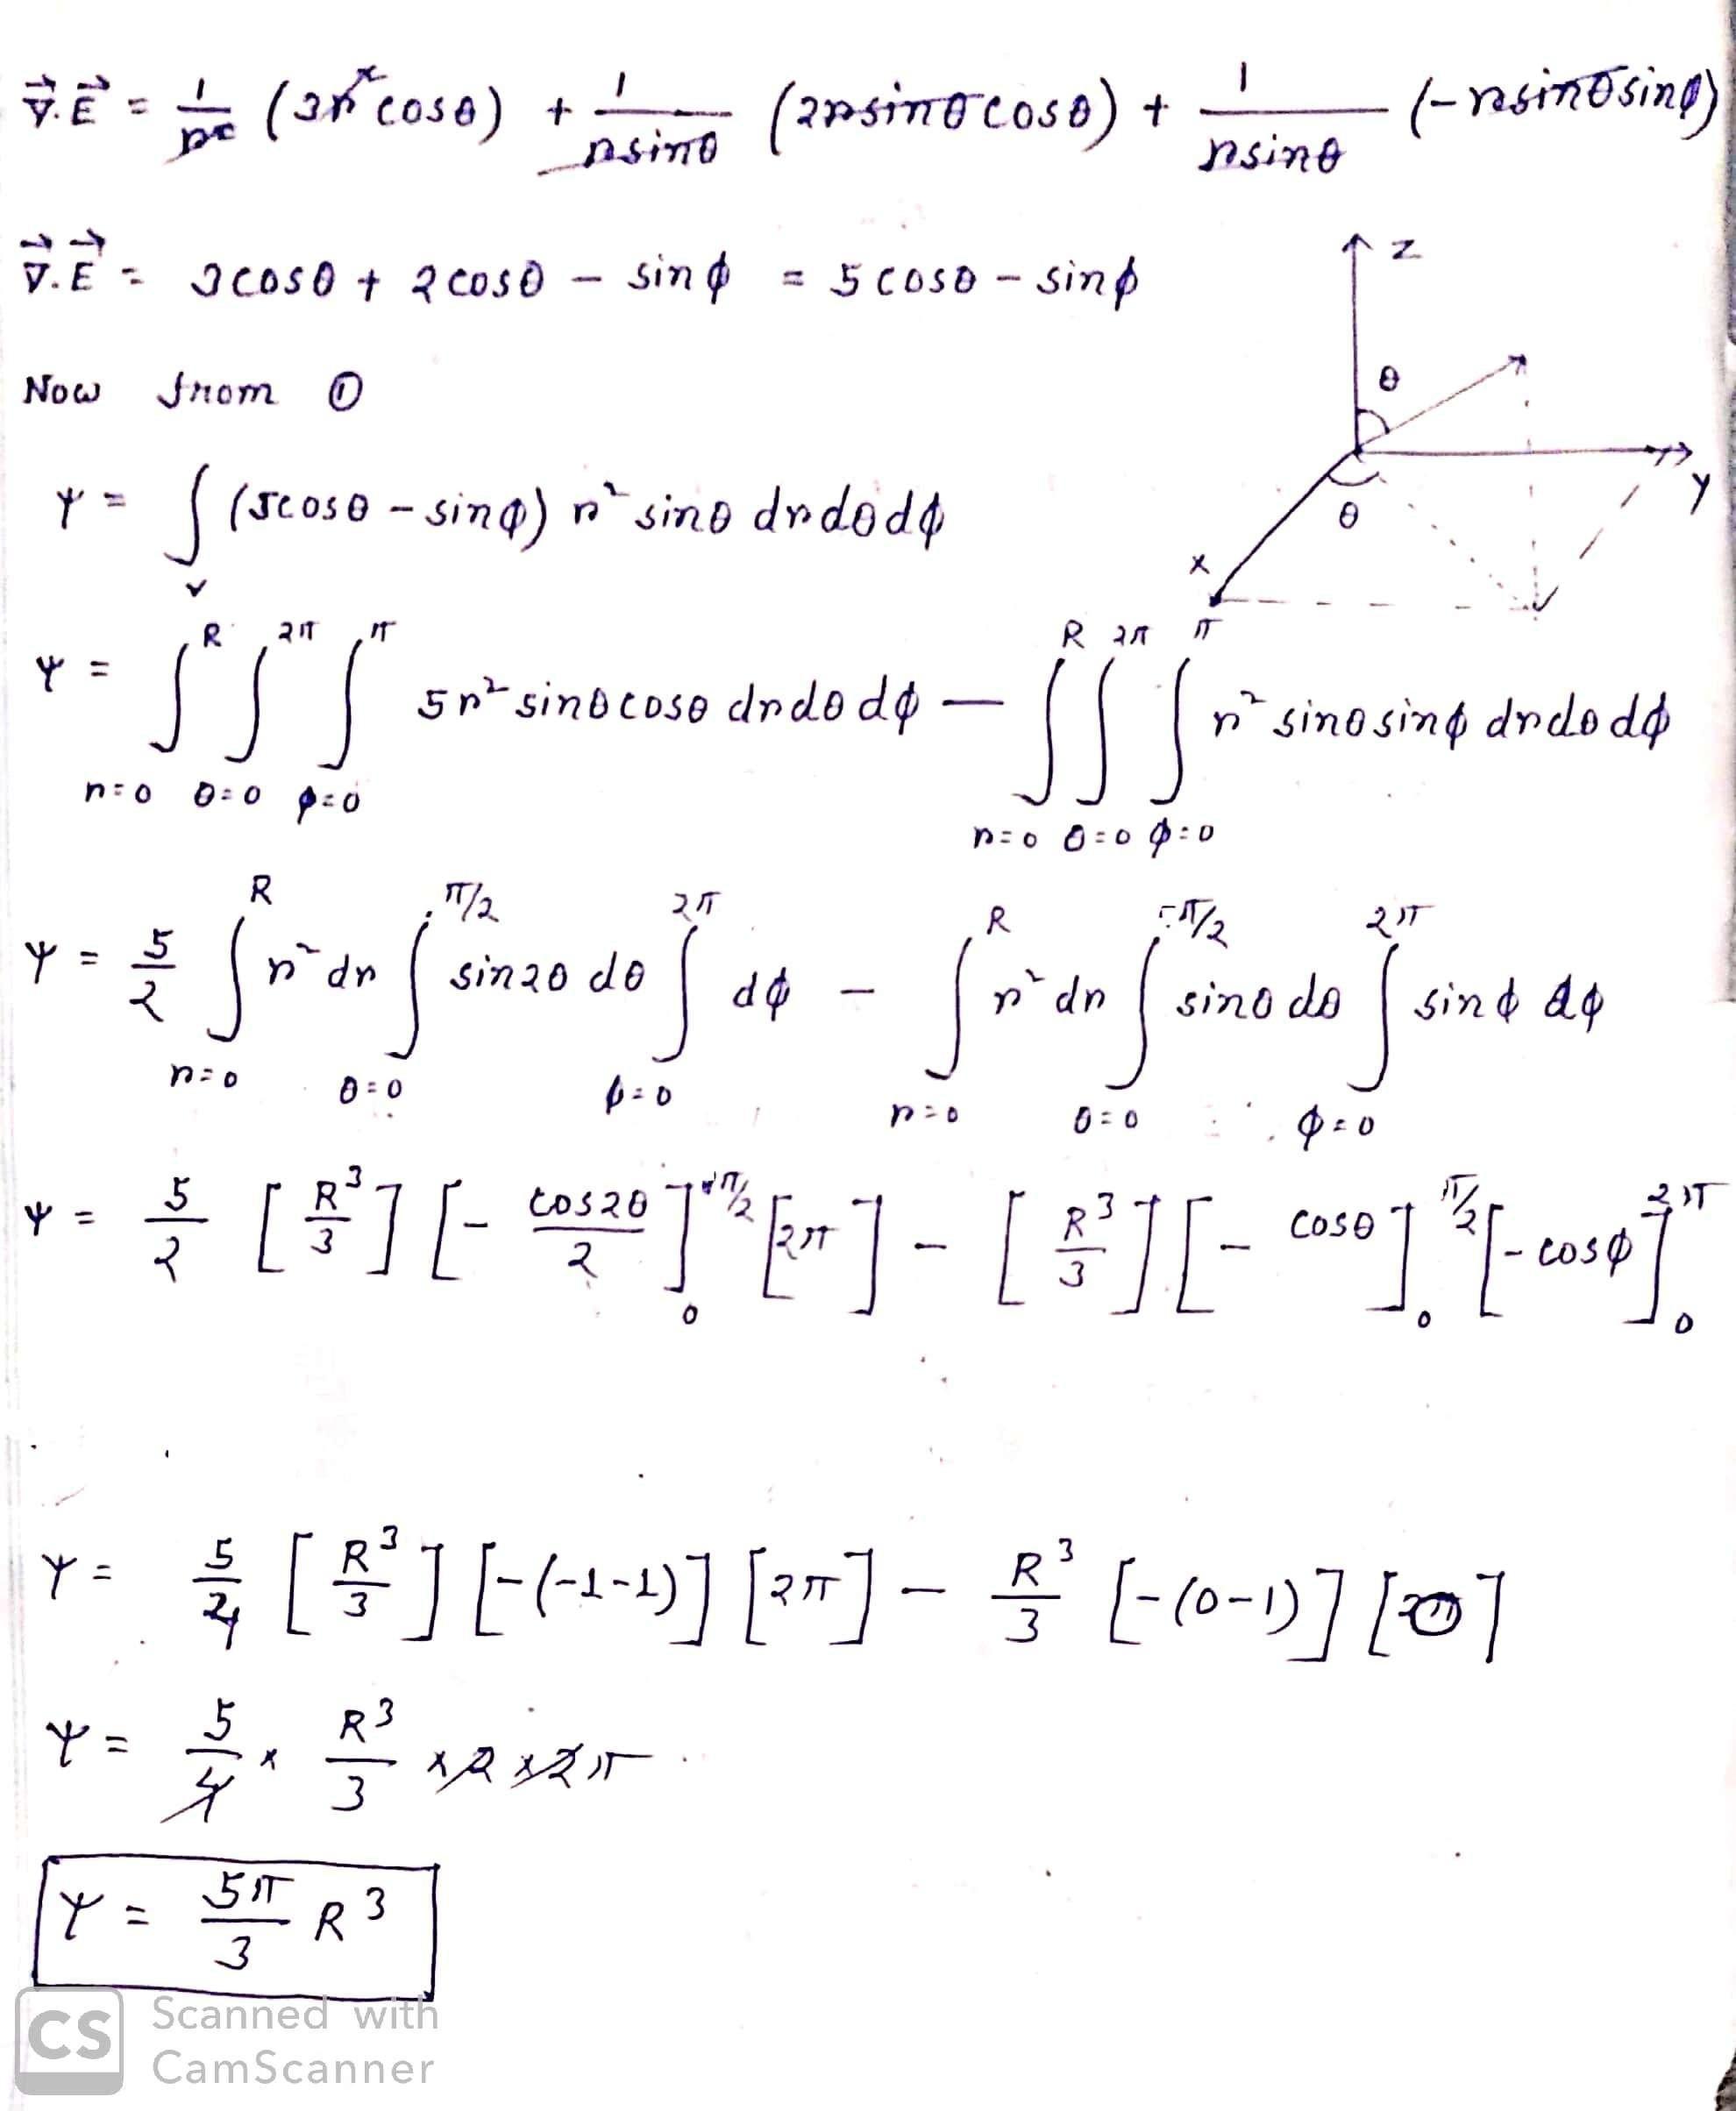 ∇⃗.E⃗ = 1/r² (3r² cosθ) + 1/rsinθ (2rsinθcosθ) + 1/rsinθ (-rsinθsinφ)
∇⃗.E⃗ = 3cosθ + 2cosθ - sinφ = 5cosθ - sinφ
z
Now from ①
θ
y
θ
x
ψ = ∫v (5cosθ - sinφ) r² sinθ dr dθ dφ
ψ = ∫_{r=0}^{R} ∫_{θ=0}^{2π} ∫_{φ=0}^{π} 5r² sinθcosθ dr dθ dφ - ∫_{r=0}^{R} ∫_{θ=0}^{2π} ∫_{φ=0}^{π} r² sinθsinφ dr dθ dφ
ψ = 5/2 ∫_{r=0}^{R} r² dr ∫_{θ=0}^{π/2} sin2θ dθ ∫_{φ=0}^{2π} dφ - ∫_{r=0}^{R} r² dr ∫_{θ=0}^{π/2} sinθ dθ ∫_{φ=0}^{2π} sinφ dφ
ψ = 5/2 [R³/3] [- cos2θ/2]_0^{π/2} [2π] - [R³/3] [- cosθ]_0^{π/2} [- cosφ]_0^{2π}
ψ = 5/4 [R³/3] [-(-1-1)] [2π] - R³/3 [-(0-1)] [0]
ψ = 5/4 × R³/3 × 2 × 2π
ψ = 5π/3 R³
CS
Scanned with
CamScanner